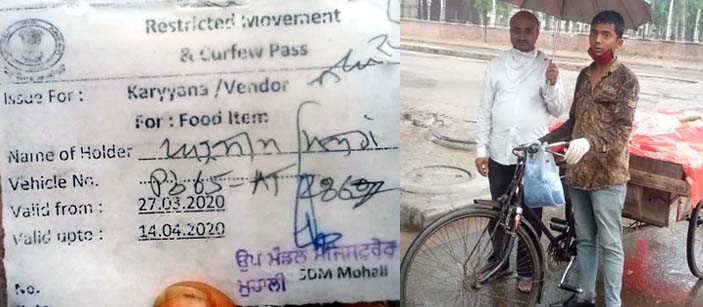 Restricted Movement
& Curfew Pass
Issue For: Karyyana /Vendor
For : Food Item
Name of Holder
Vehicle No. PB65-AT
Valid from : 27.03.2020
Valid upto : 14.04.2020
ਉਪ ਮੰਡਲ ਮੈਜਿਸਟਰੇਟ
ਮੁਹਾਲੀ SDM Mohali
No.